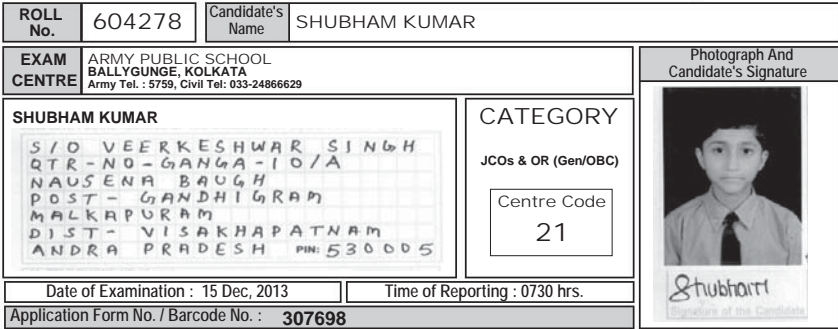 ROLL No. 604278 Candidate's Name SHUBHAM KUMAR
EXAM CENTRE
ARMY PUBLIC SCHOOL
BALLYGUNGE, KOLKATA
Army Tel. : 5759, Civil Tel: 033-24866629
Photograph And
Candidate's Signature
SHUBHAM KUMAR
S/O VEERKESHWAR SINGH
QTR-NO-GANGA-10/A
NAUSENA BAUGH
POST- GANDHIGRAM
MALKAPURAM
DIST- VISAKHAPATNAM
ANDRA PRADESH PIN: 530005
CATEGORY
JCOs & OR (Gen/OBC)
Centre Code
21
Shubham
Signature of the Candidate
Date of Examination : 15 Dec, 2013 Time of Reporting : 0730 hrs.
Application Form No. / Barcode No. : 307698